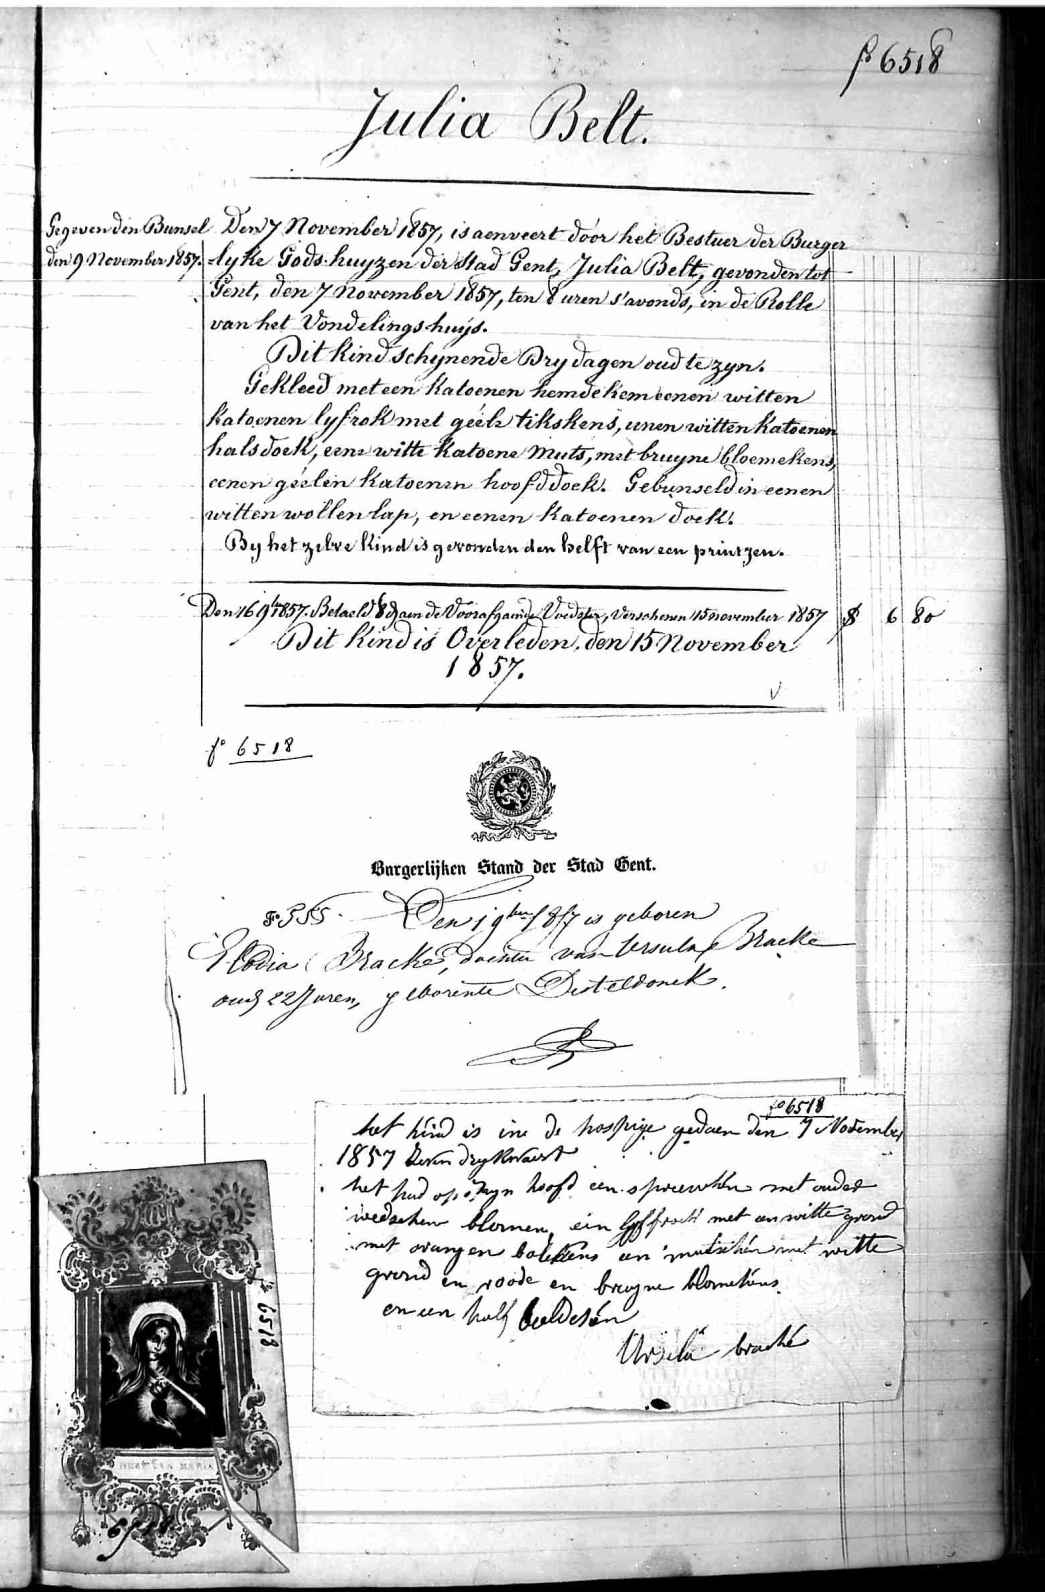 fº 6518
Julia Belt.
Gegeven den Bunsel
den 9 November 1857.
Den 7 November 1857, is aenveert door het Bestuer der Burger
lyke Gods-huyzen der Stad Gent, Julia Belt, gevonden tot
Gent, den 7 November 1857, ten 8 uren s'avonds, in de Rolle
van het Vondelingshuijs.
Dit kind schynende Dry dagen oud te zyn.
Gekleed met een katoenen hemdeken eenen witten
katoenen lyfrok met geéle tikskens, eenen witten katoenen
halsdoek, eene witte katoene muts, met bruyne bloemekens,
eenen géélen katoenen hoofddoek. Gebunseld in eenen
witten wollen lap, en eenen katoenen doek.
By het zelve kind is gevonden den helft van een printzen.
Den 16 9b 1857. Betaeld 8 d aen de Voorafgaende Voedster, Verschenen 15 november 1857 $ 6 80
Dit kind is Overleden, den 15 November
1857.
fº 6518
Burgerlijken Stand der Stad Gent.
Fº 555. Den 1 9ber 1857 is geboren
Elodia Bracke, dochter van Ursula Bracke
oud 22 Jaren, geborente Desteldonck.
fº 6518
het kind is ine de hospige gedaen den 7 November
1857 dry kwaert
het had op zyn hoofd een met
blomen, ein lyffrock met een witte grond
met orangen bolekens en mutschen met witte
grond en roode en bruyne blomekens
en een half beeldeken
Ursela braché
fº 6518
6518